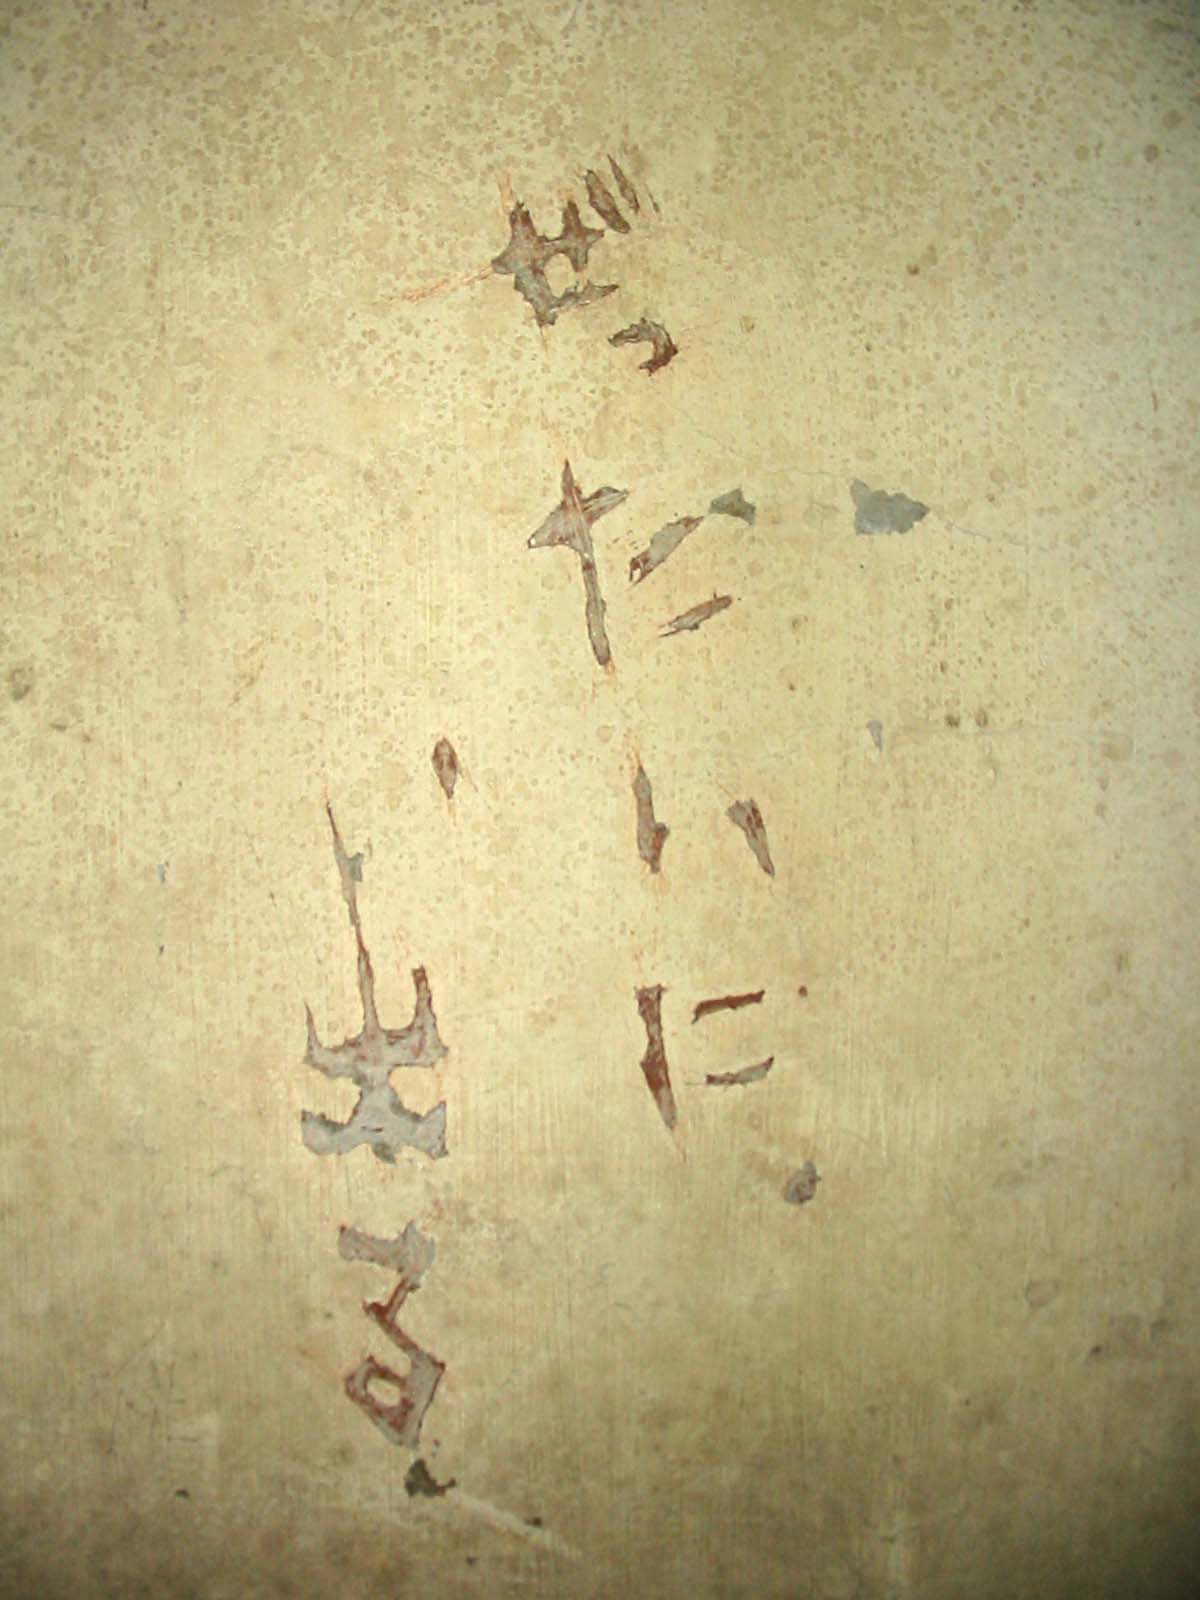 ぜったいに
出る